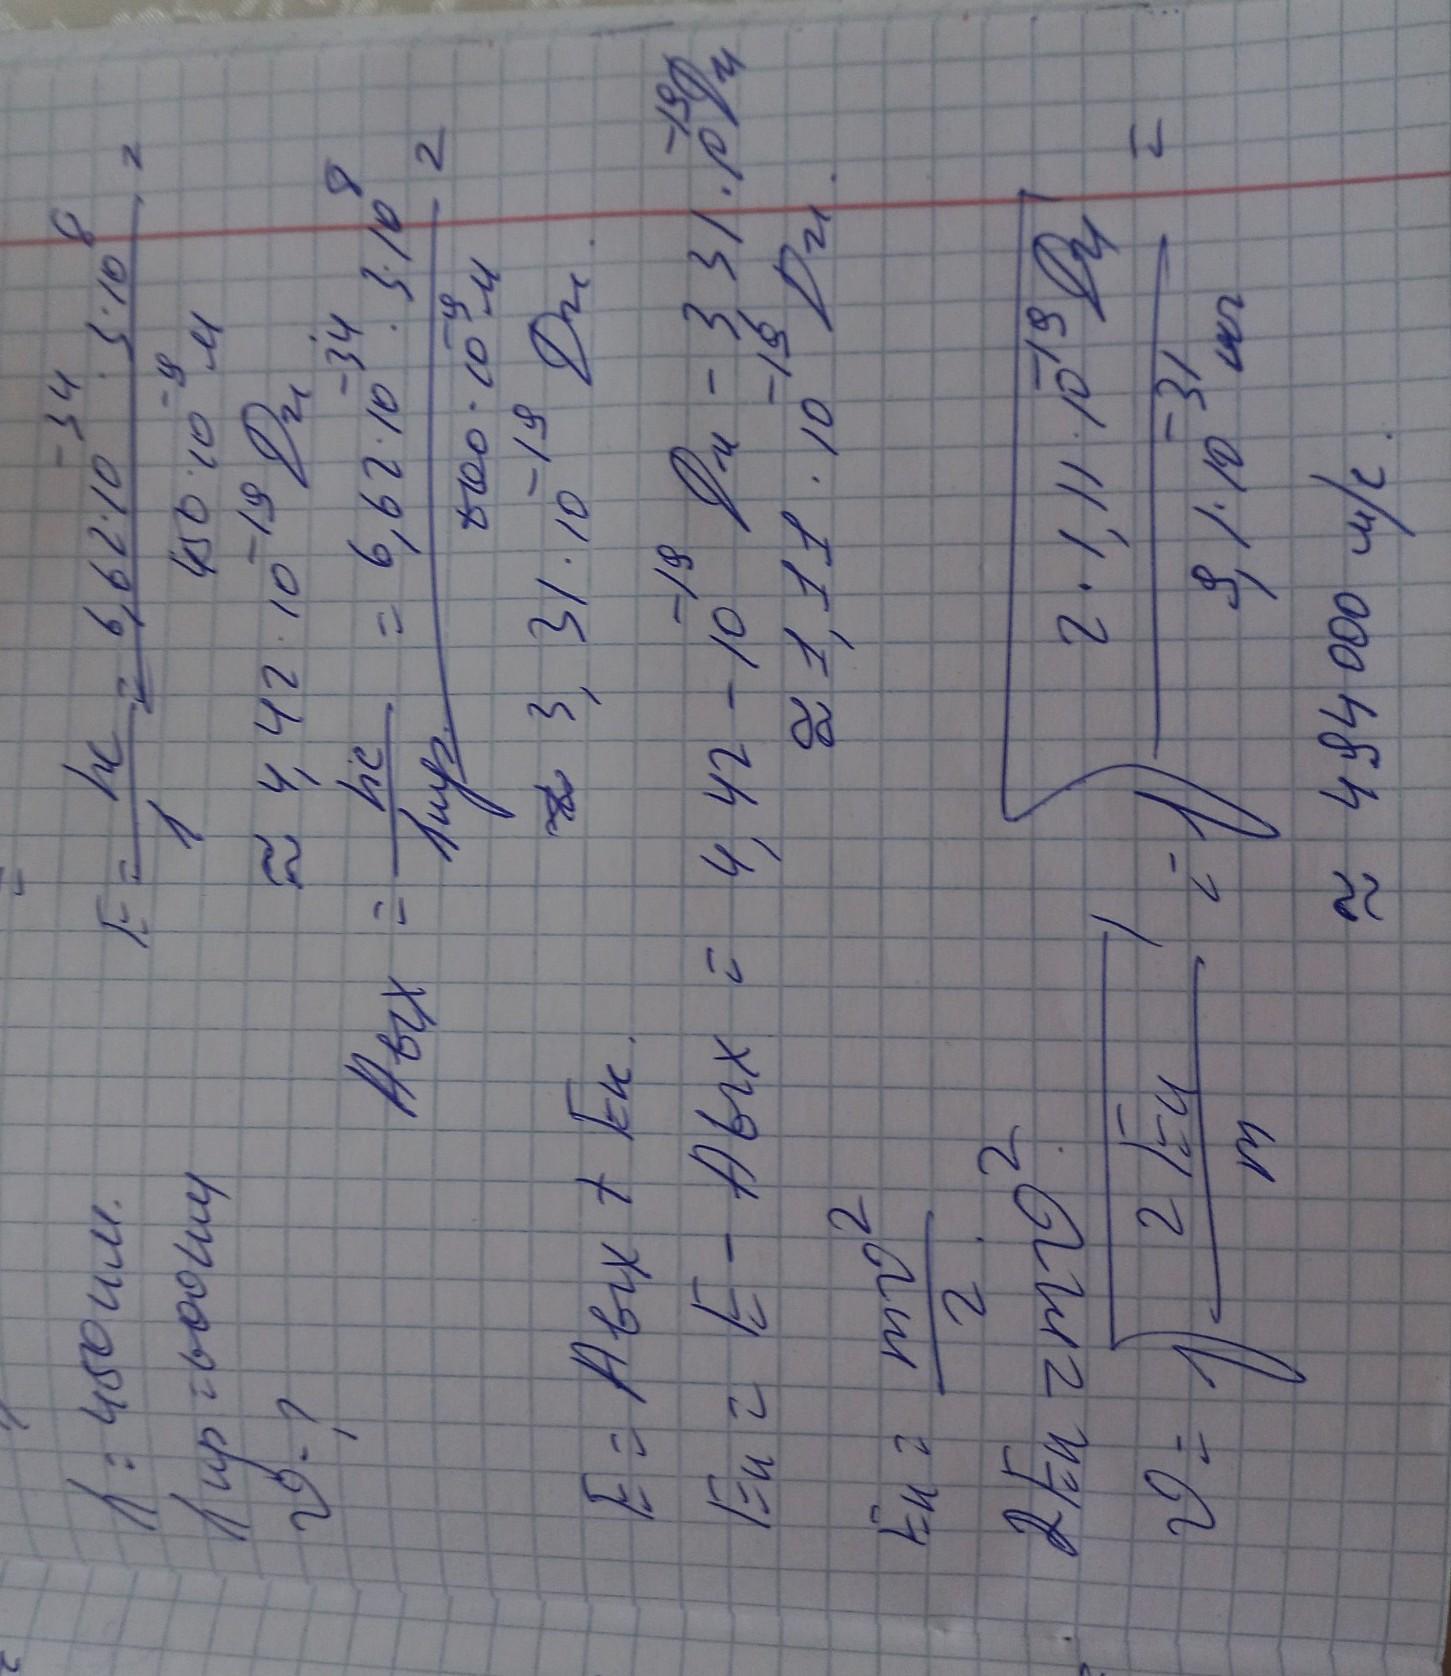 λ = 450 нм.
λкр = 600 нм
υ - ?
E = hc/λ = 6,62·10^-34 · 3·10^8 / 450·10^-9 м =
≈ 4,42·10^-19 Дж
Aвых = hc/λкр = 6,62·10^-34 · 3·10^8 / 600·10^-9 м =
≈ 3,31·10^-19 Дж.
E = Aвых + Eк.
Eк = E - Aвых = 4,42 - 10^-19 Дж - 3 31·10^-19 Дж
≈ 1,11·10^-19 Дж.
Eк = mυ²/2.
2Eк = mυ².
υ = √(2Eк/m) = √(2·1,11·10^-19 Дж / 9,1·10^-31 кг) =
≈ 494 000 м/с.